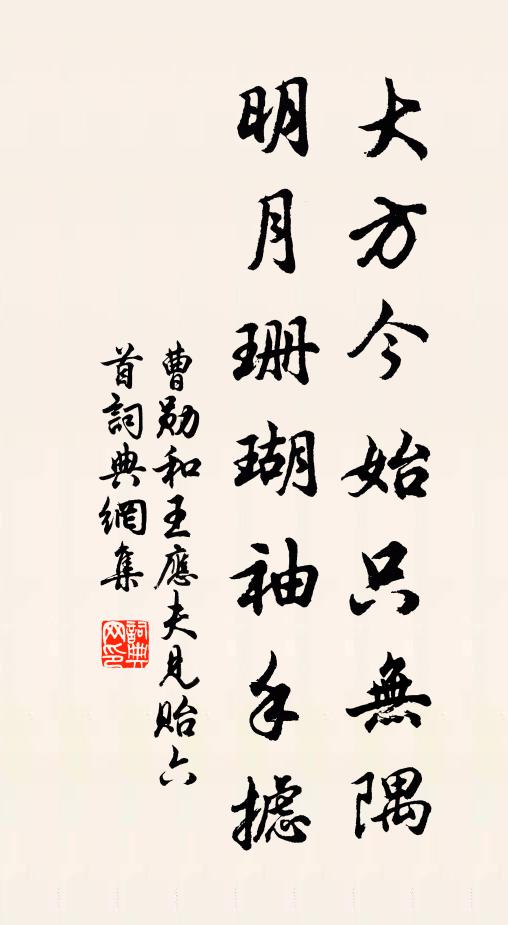 大方今始只無隅
明月珊瑚袖手攄
曹勛和王應夫見貽六
首詞典網集
詞典
网印